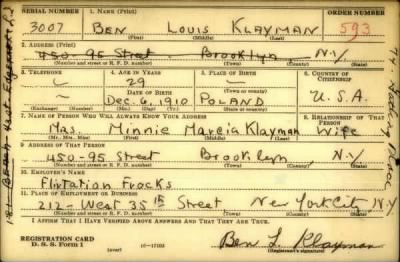 SERIAL NUMBER 1. NAME (Print) ORDER NUMBER
3007 BEN LOUIS KLAYMAN 593
(First) (Middle) (Last)
2. ADDRESS (Print)
450-95 Street Brooklyn N.Y.
(Number and street or R. F. D. number) (Town) (County) (State)
3. TELEPHONE 4. AGE IN YEARS 5. PLACE OF BIRTH 6. COUNTRY OF CITIZENSHIP
29
(Town or county)
DATE OF BIRTH
Dec. 6, 1910 POLAND U.S.A.
(Exchange) (Number) (Mo.) (Day) (Yr.) (State or country)
7. NAME OF PERSON WHO WILL ALWAYS KNOW YOUR ADDRESS 8. RELATIONSHIP OF THAT PERSON
Mrs. Minnie Marcia Klayman Wife
(Mr., Mrs., Miss) (First) (Middle) (Last)
9. ADDRESS OF THAT PERSON
450-95 Street Brooklyn N.Y.
(Number and street or R. F. D. number) (Town) (County) (State)
10. EMPLOYER'S NAME
Flirtation Frocks
11. PLACE OF EMPLOYMENT OR BUSINESS
212-West 35th Street New York City N.Y.
(Number and street or R. F. D. number) (Town) (County) (State)
I AFFIRM THAT I HAVE VERIFIED ABOVE ANSWERS AND THAT THEY ARE TRUE.
REGISTRATION CARD
D. S. S. Form 1 (over) 16-17105
Ben L. Klayman
(Registrant's signature)